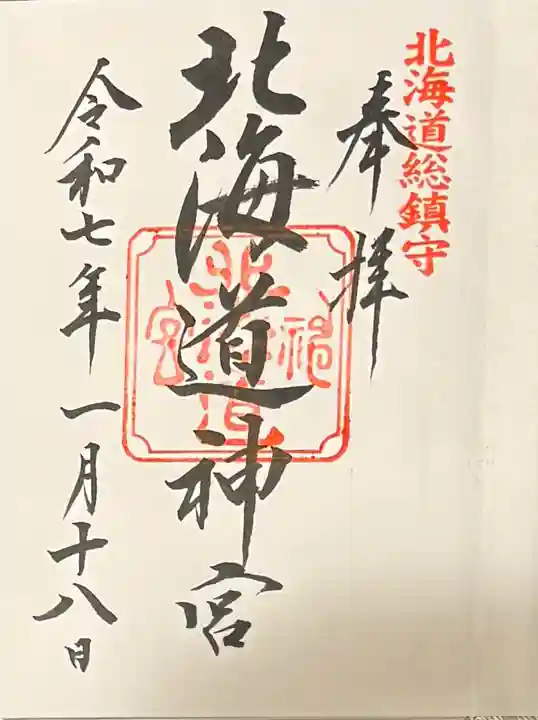 北海道総鎮守
奉拝
北海道神宮
北海道神宮
令和七年一月十八日